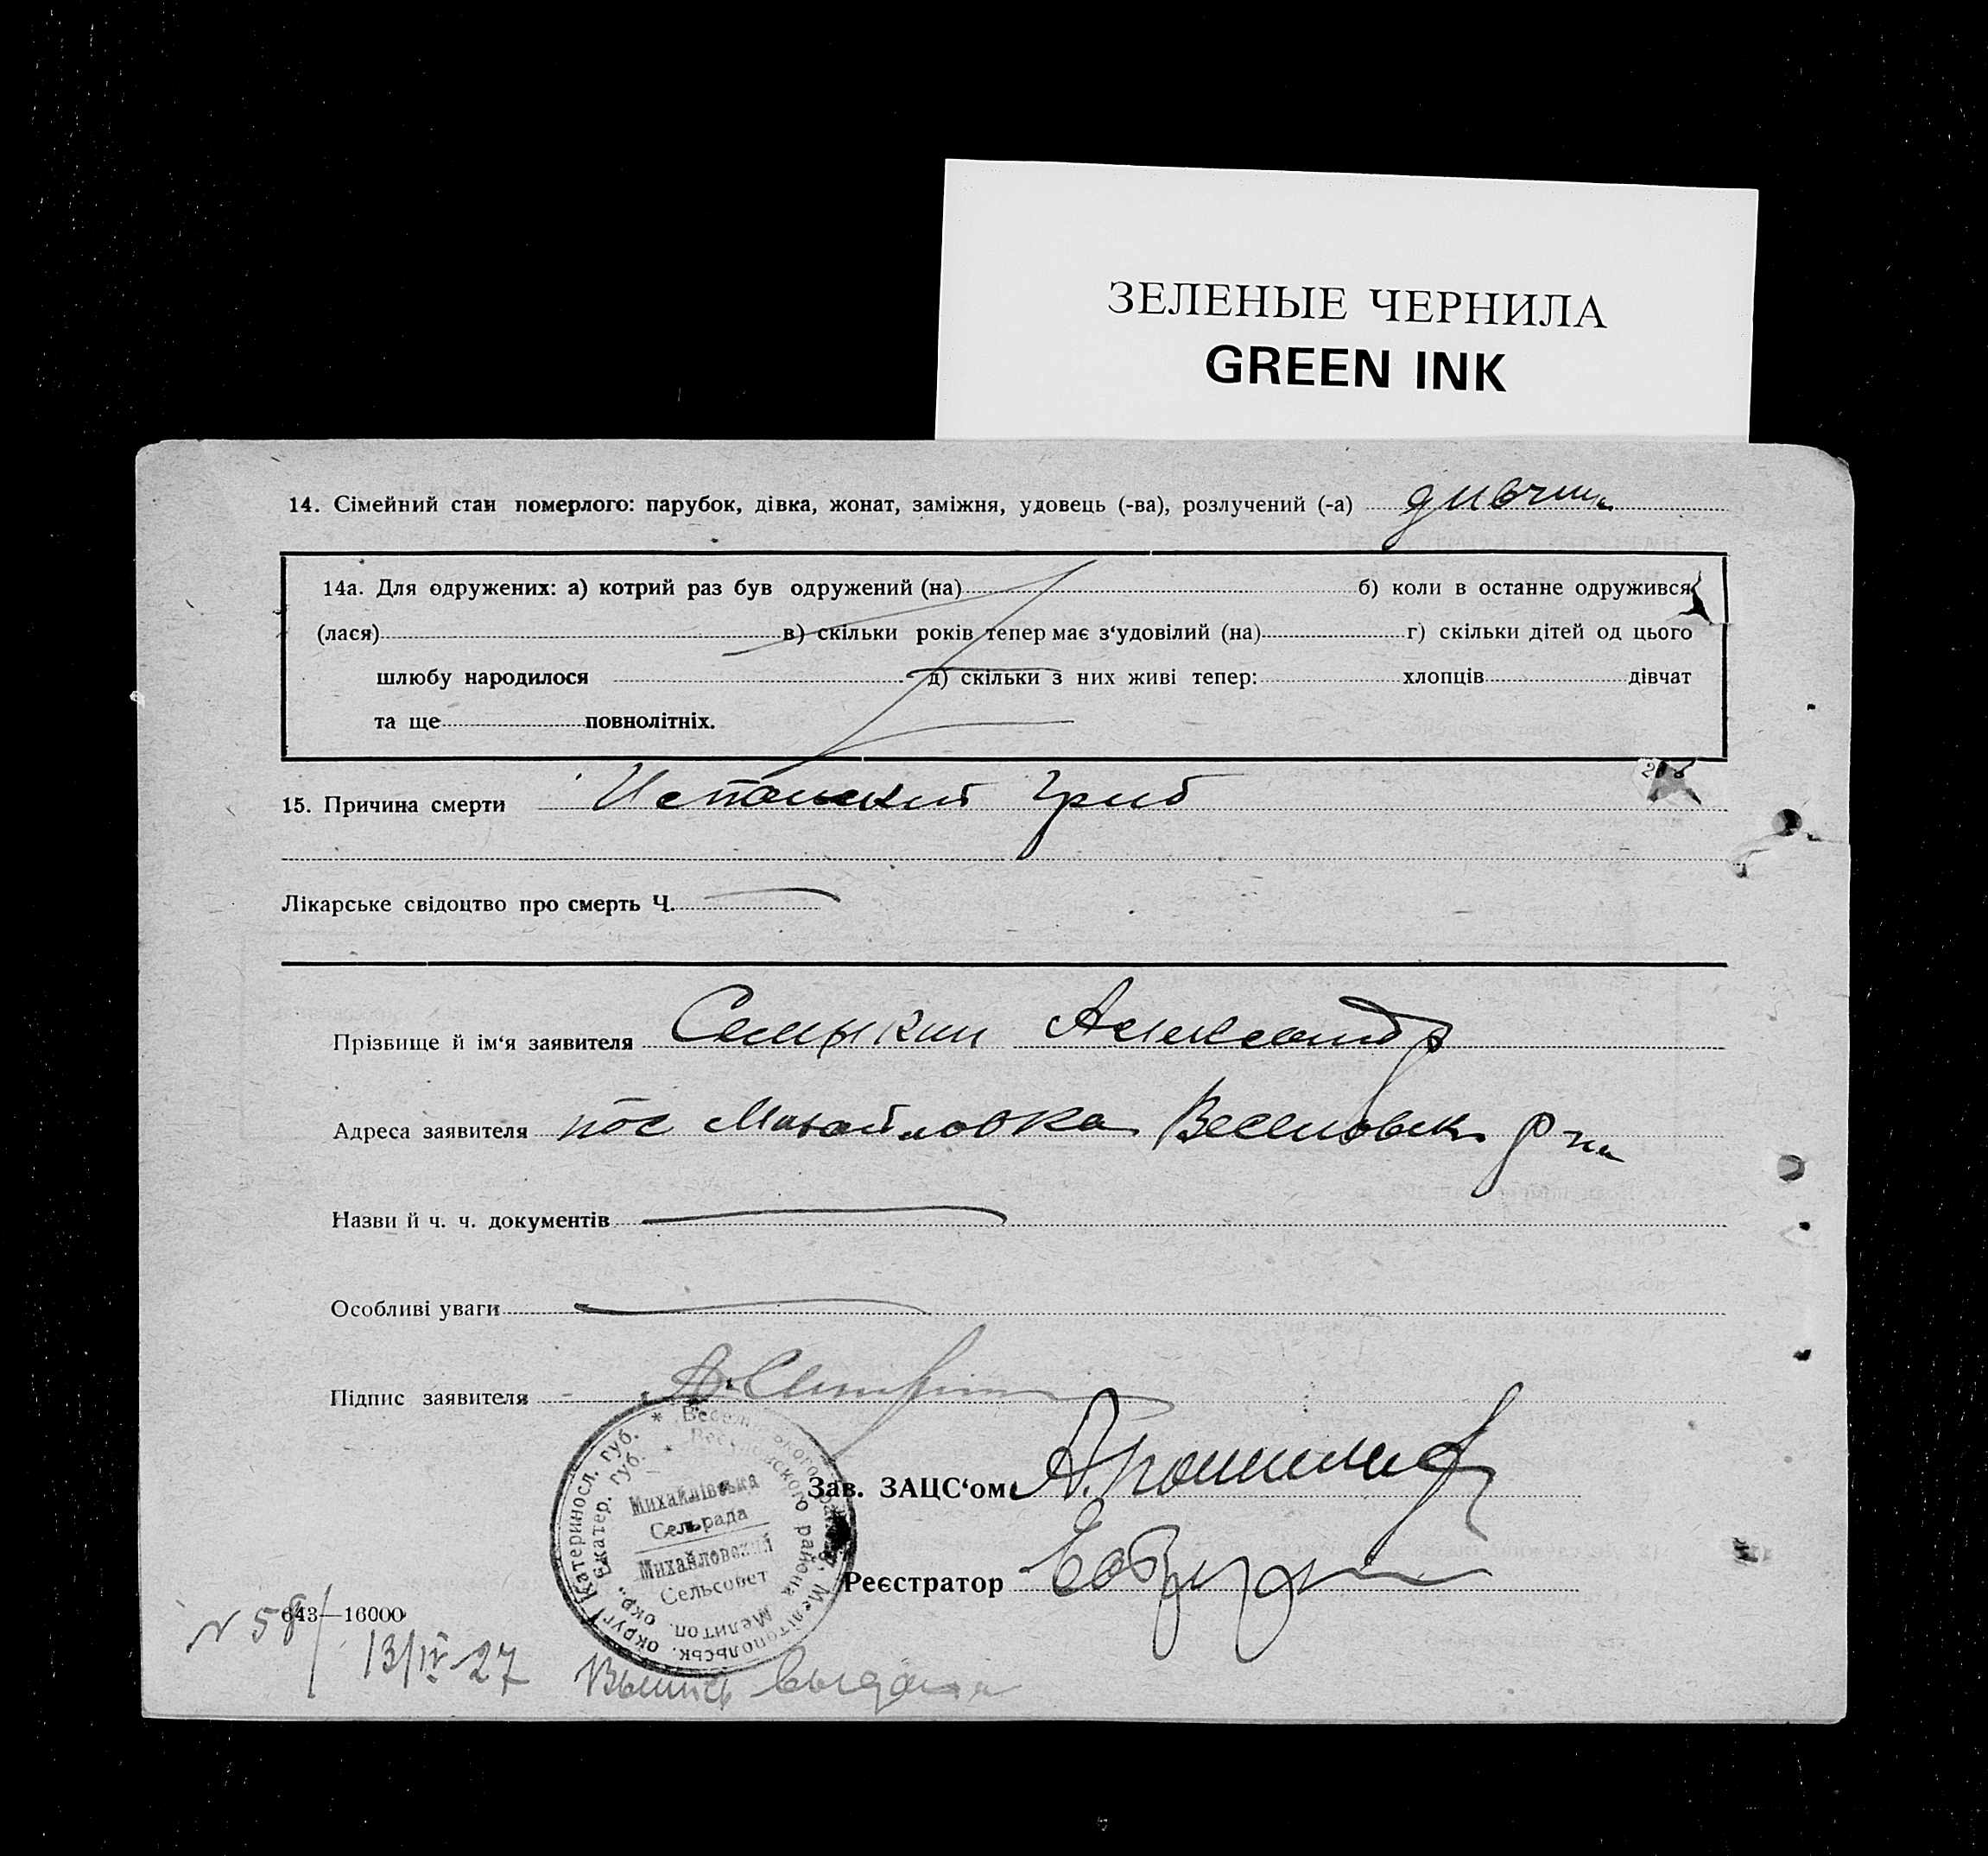 ЗЕЛЕНЫЕ ЧЕРНИЛА
GREEN INK
14. Сімейний стан померлого: парубок, дівка, жонат, заміжня, удовець (-ва), розлучений (-а) дивчина
14а. Для одружених: а) котрий раз був одружений (на) б) коли в останнє одружився
(лася) в) скільки років тепер має з‘удовілий (на) г) скільки дітей од цього
шлюбу народилося д) скільки з них живі тепер: хлопців дівчат
та ще повнолітніх.
15. Причина смерти Испанский Грип
Лікарське свідоцтво про смерть Ч.
Прізвище й ім‘я заявителя Семыкин Александр
Адреса заявителя пос Михайловка Веселовск р-на
Назви й ч. ч. документів
Особливі уваги
Підпис заявителя
Михайлівська
Сельрада
Михайловский
Сельсовет
Катериносл. губ. * Веселівського району, Мелітопольськ. округ
Екатер. губ. * Веселовского района Мелитоп. окр.
Зав. ЗАЦС‘ом
Реєстратор
643—16000
N 58/ 13/IV-27 Выпись выдана